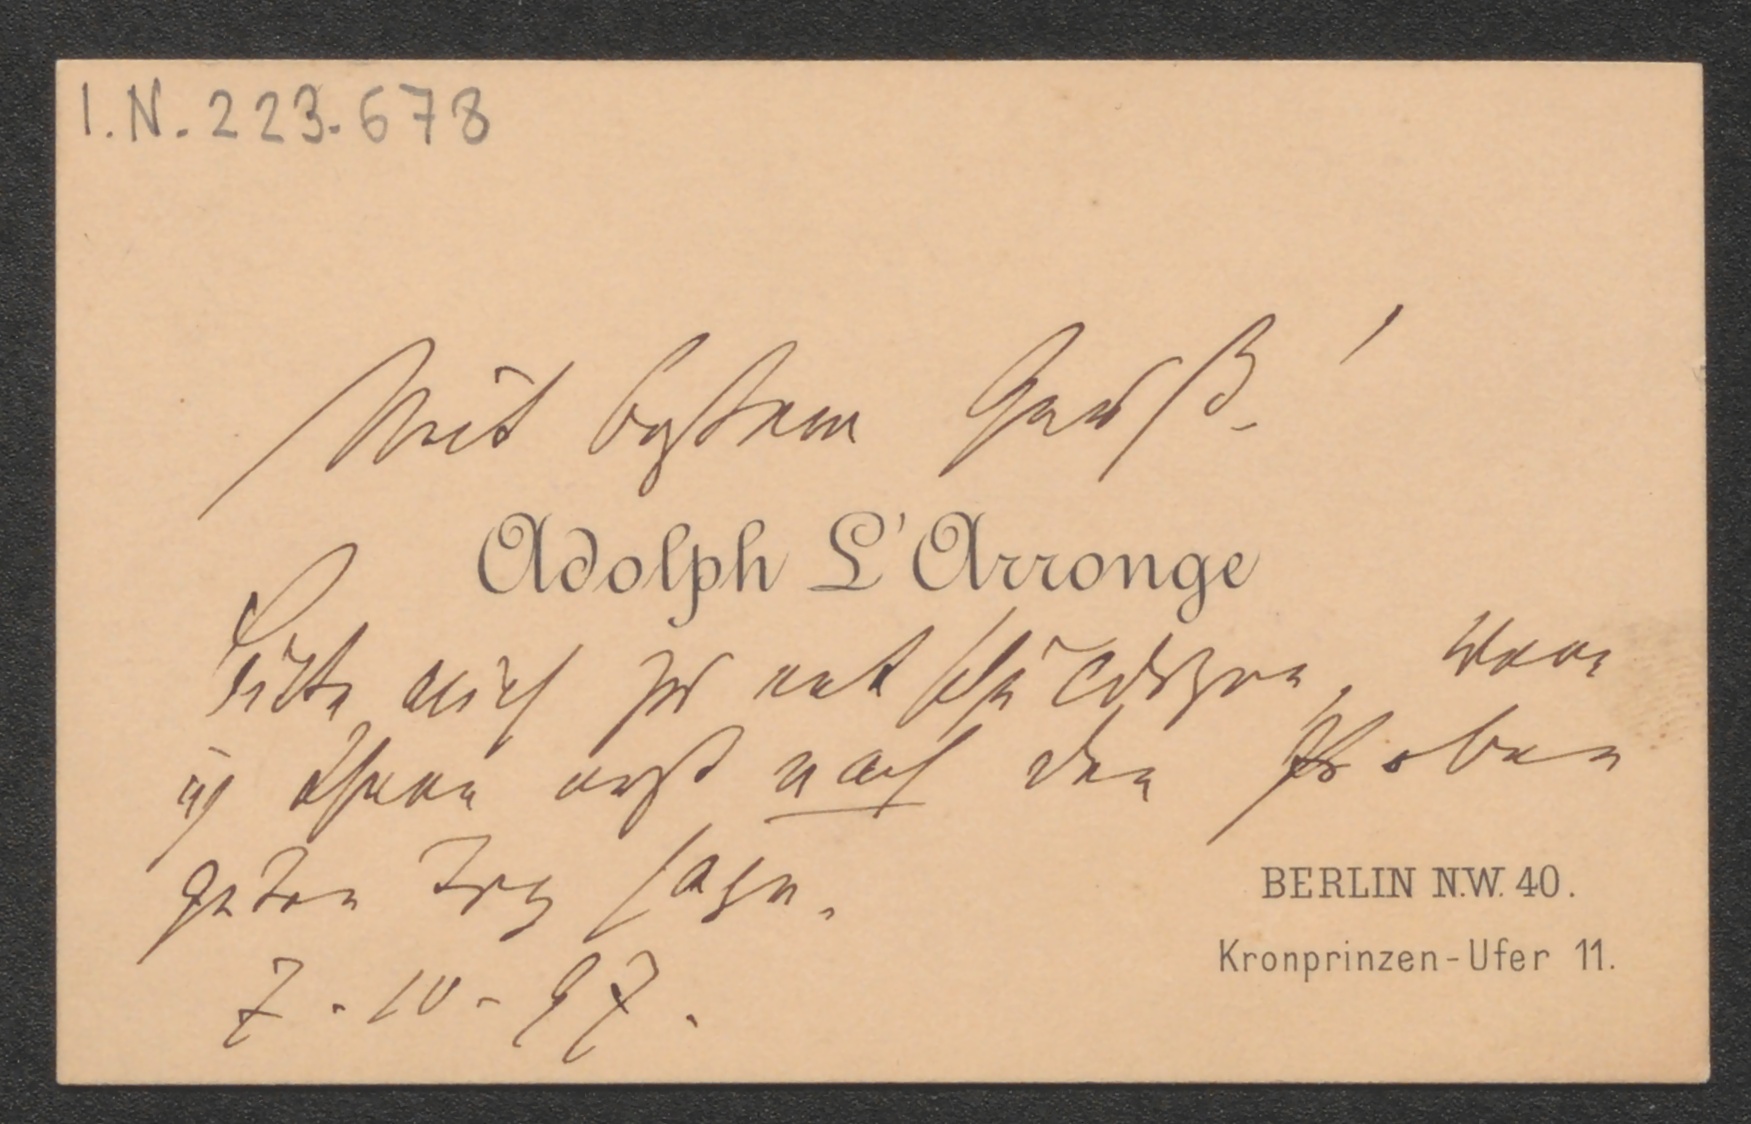 I.N. 223.678
Mit bestem Gruß!
Adolph L'Arronge
Bitte mich zu entschuldigen, wenn
ich Ihnen erst nach den Proben
guten Tag sage.
7.10.97.
BERLIN N.W. 40.
Kronprinzen-Ufer 11.